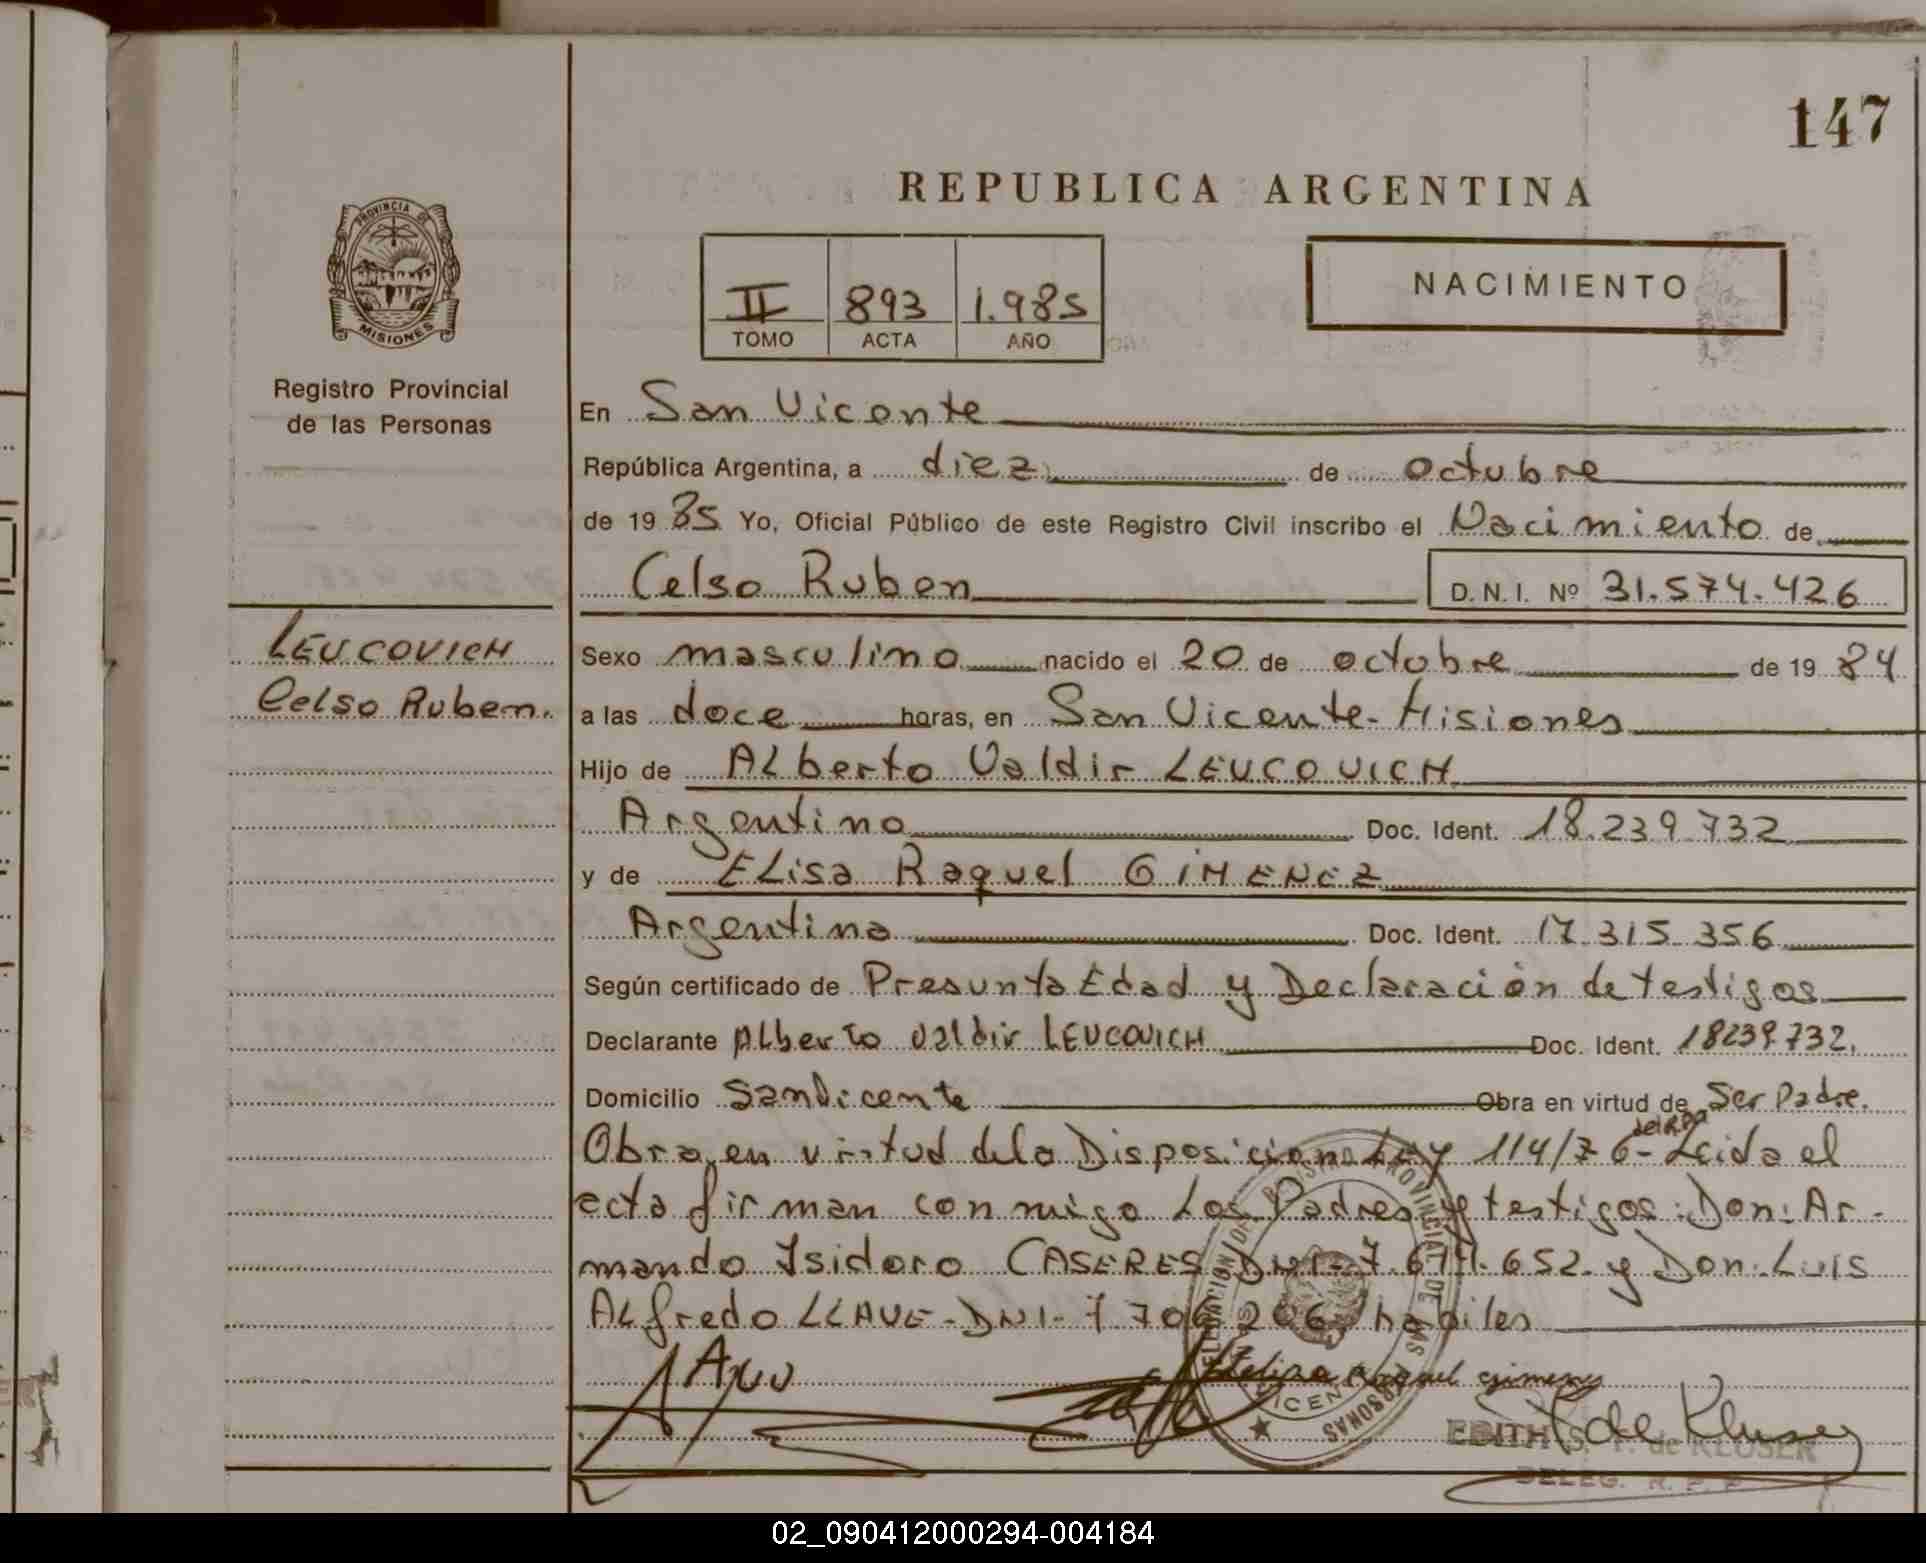 147
REPUBLICA ARGENTINA
PROVINCIA DE
MISIONES
II 893 1.985
TOMO ACTA AÑO
NACIMIENTO
Registro Provincial
de las Personas
En San Vicente
República Argentina, a diez de octubre
de 19 85 Yo, Oficial Público de este Registro Civil inscribo el Nacimiento de
Celso Ruben D.N.I. Nº 31.574.426
LEUCOVICH
Celso Ruben.
Sexo masculino nacido el 20 de octubre de 19 84
a las doce horas, en San Vicente-Misiones
Hijo de ALberto Valdir LEUCOVICH
Argentino Doc. Ident. 18.239.732
y de ELisa Raquel GIMENEZ
Argentina Doc. Ident. 17.315.356
Según certificado de Presunta Edad y Declaración de testigos
Declarante ALberto Valdir LEUCOVICH Doc. Ident. 18239.732.
Domicilio San Vicente Obra en virtud de Ser Padre.
Obra en virtud dela Disposicion Ley 114/76- Leida el
acta firman con migo Los Padres y testigos: Don: Ar-
mando Isidoro CASERES DNI-7.671.652 y Don. Luis
ALfredo LLAVE-DNI-7.706.206 habiles
Raquel gimenez
de Kluser
EDITH S. F. de KLUSER
DELEG. R. P. P.
02_090412000294-004184